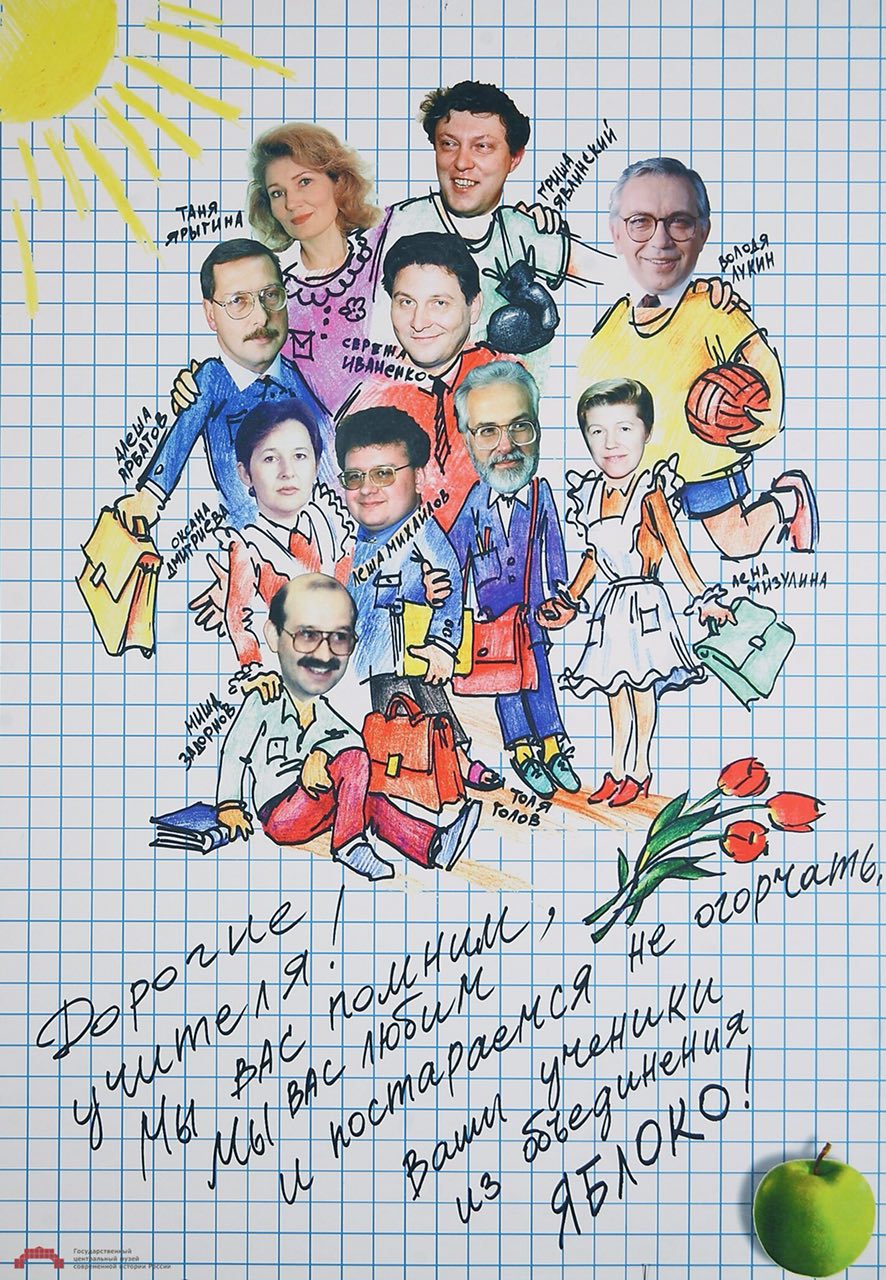 ТАНЯ
ЯРЫГИНА
ГРИША
ЯВЛИНСКИЙ
ВОЛОДЯ
ЛУКИН
СЕРЕЖА
ИВАНЕНКО
АЛЕША
АРБАТОВ
ОКСАНА
ДМИТРИЕВА
ЛЕША МИХАЙЛОВ
ЛЕНА
МИЗУЛИНА
МИША
ЗАДОРНОВ
ТОЛЯ
ГОЛОВ
Дорогие
учителя!
Мы вас помним,
Мы вас любим
и постараемся не огорчать,
Ваши ученики
из объединения
ЯБЛОКО!
Государственный
центральный музей
современной истории России